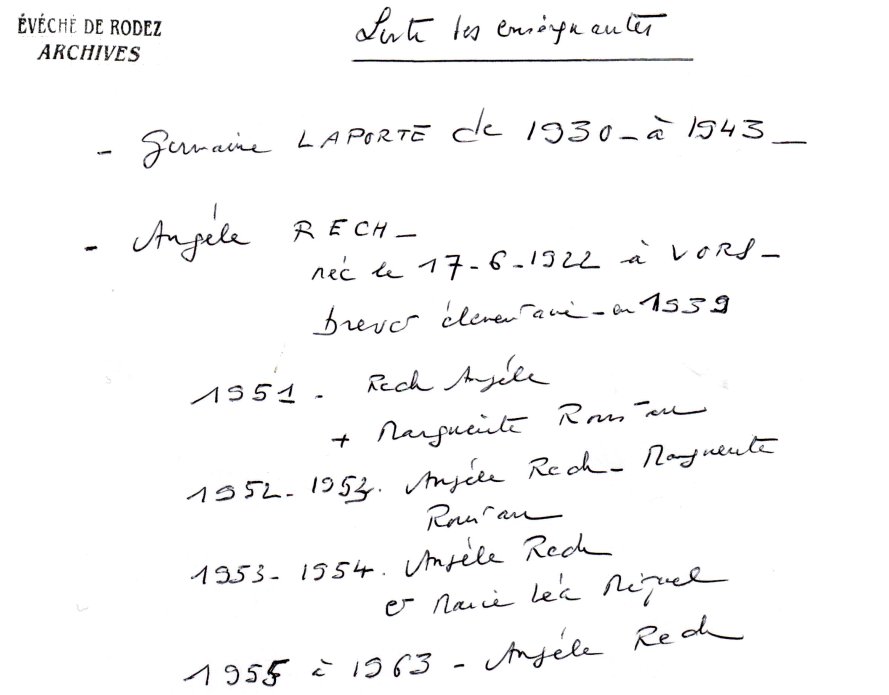 ÉVÊCHÉ DE RODEZ
ARCHIVES
Liste des enseignantes
- Germaine LAPORTE de 1930 - à 1943 -
- Angèle RECH -
née le 17-6-1922 à VORS -
brevet élémentaire - en 1939
1951 - Rech Angèle
+ Marguerite Roustan
1952-1953. Angèle Rech - Marguerite
Roustan
1953-1954. Angèle Rech
et Marie Léa Miquel
1955 à 1963 - Angèle Rech